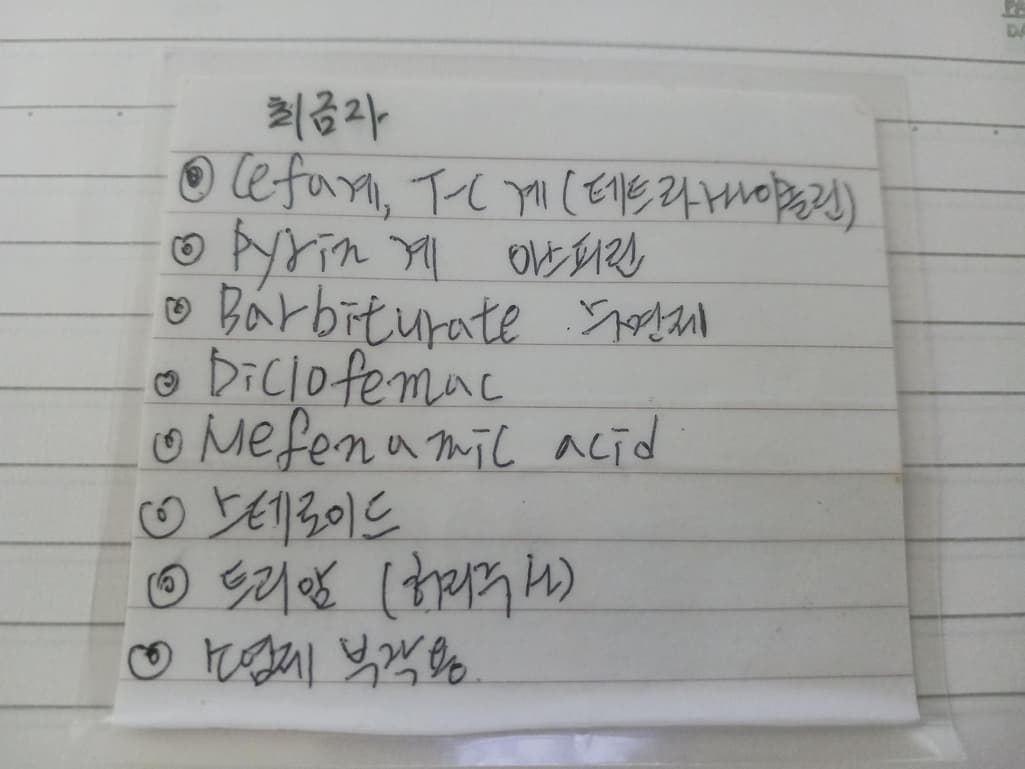 최금자
Cefa계, T-C 계 (테트라사이클린)
Pyrin 계 아스피린
Barbiturate 수면제
Diclofemac
Mefenamic acid
스테로이드
트리암 (허리주사)
소염제 부작용